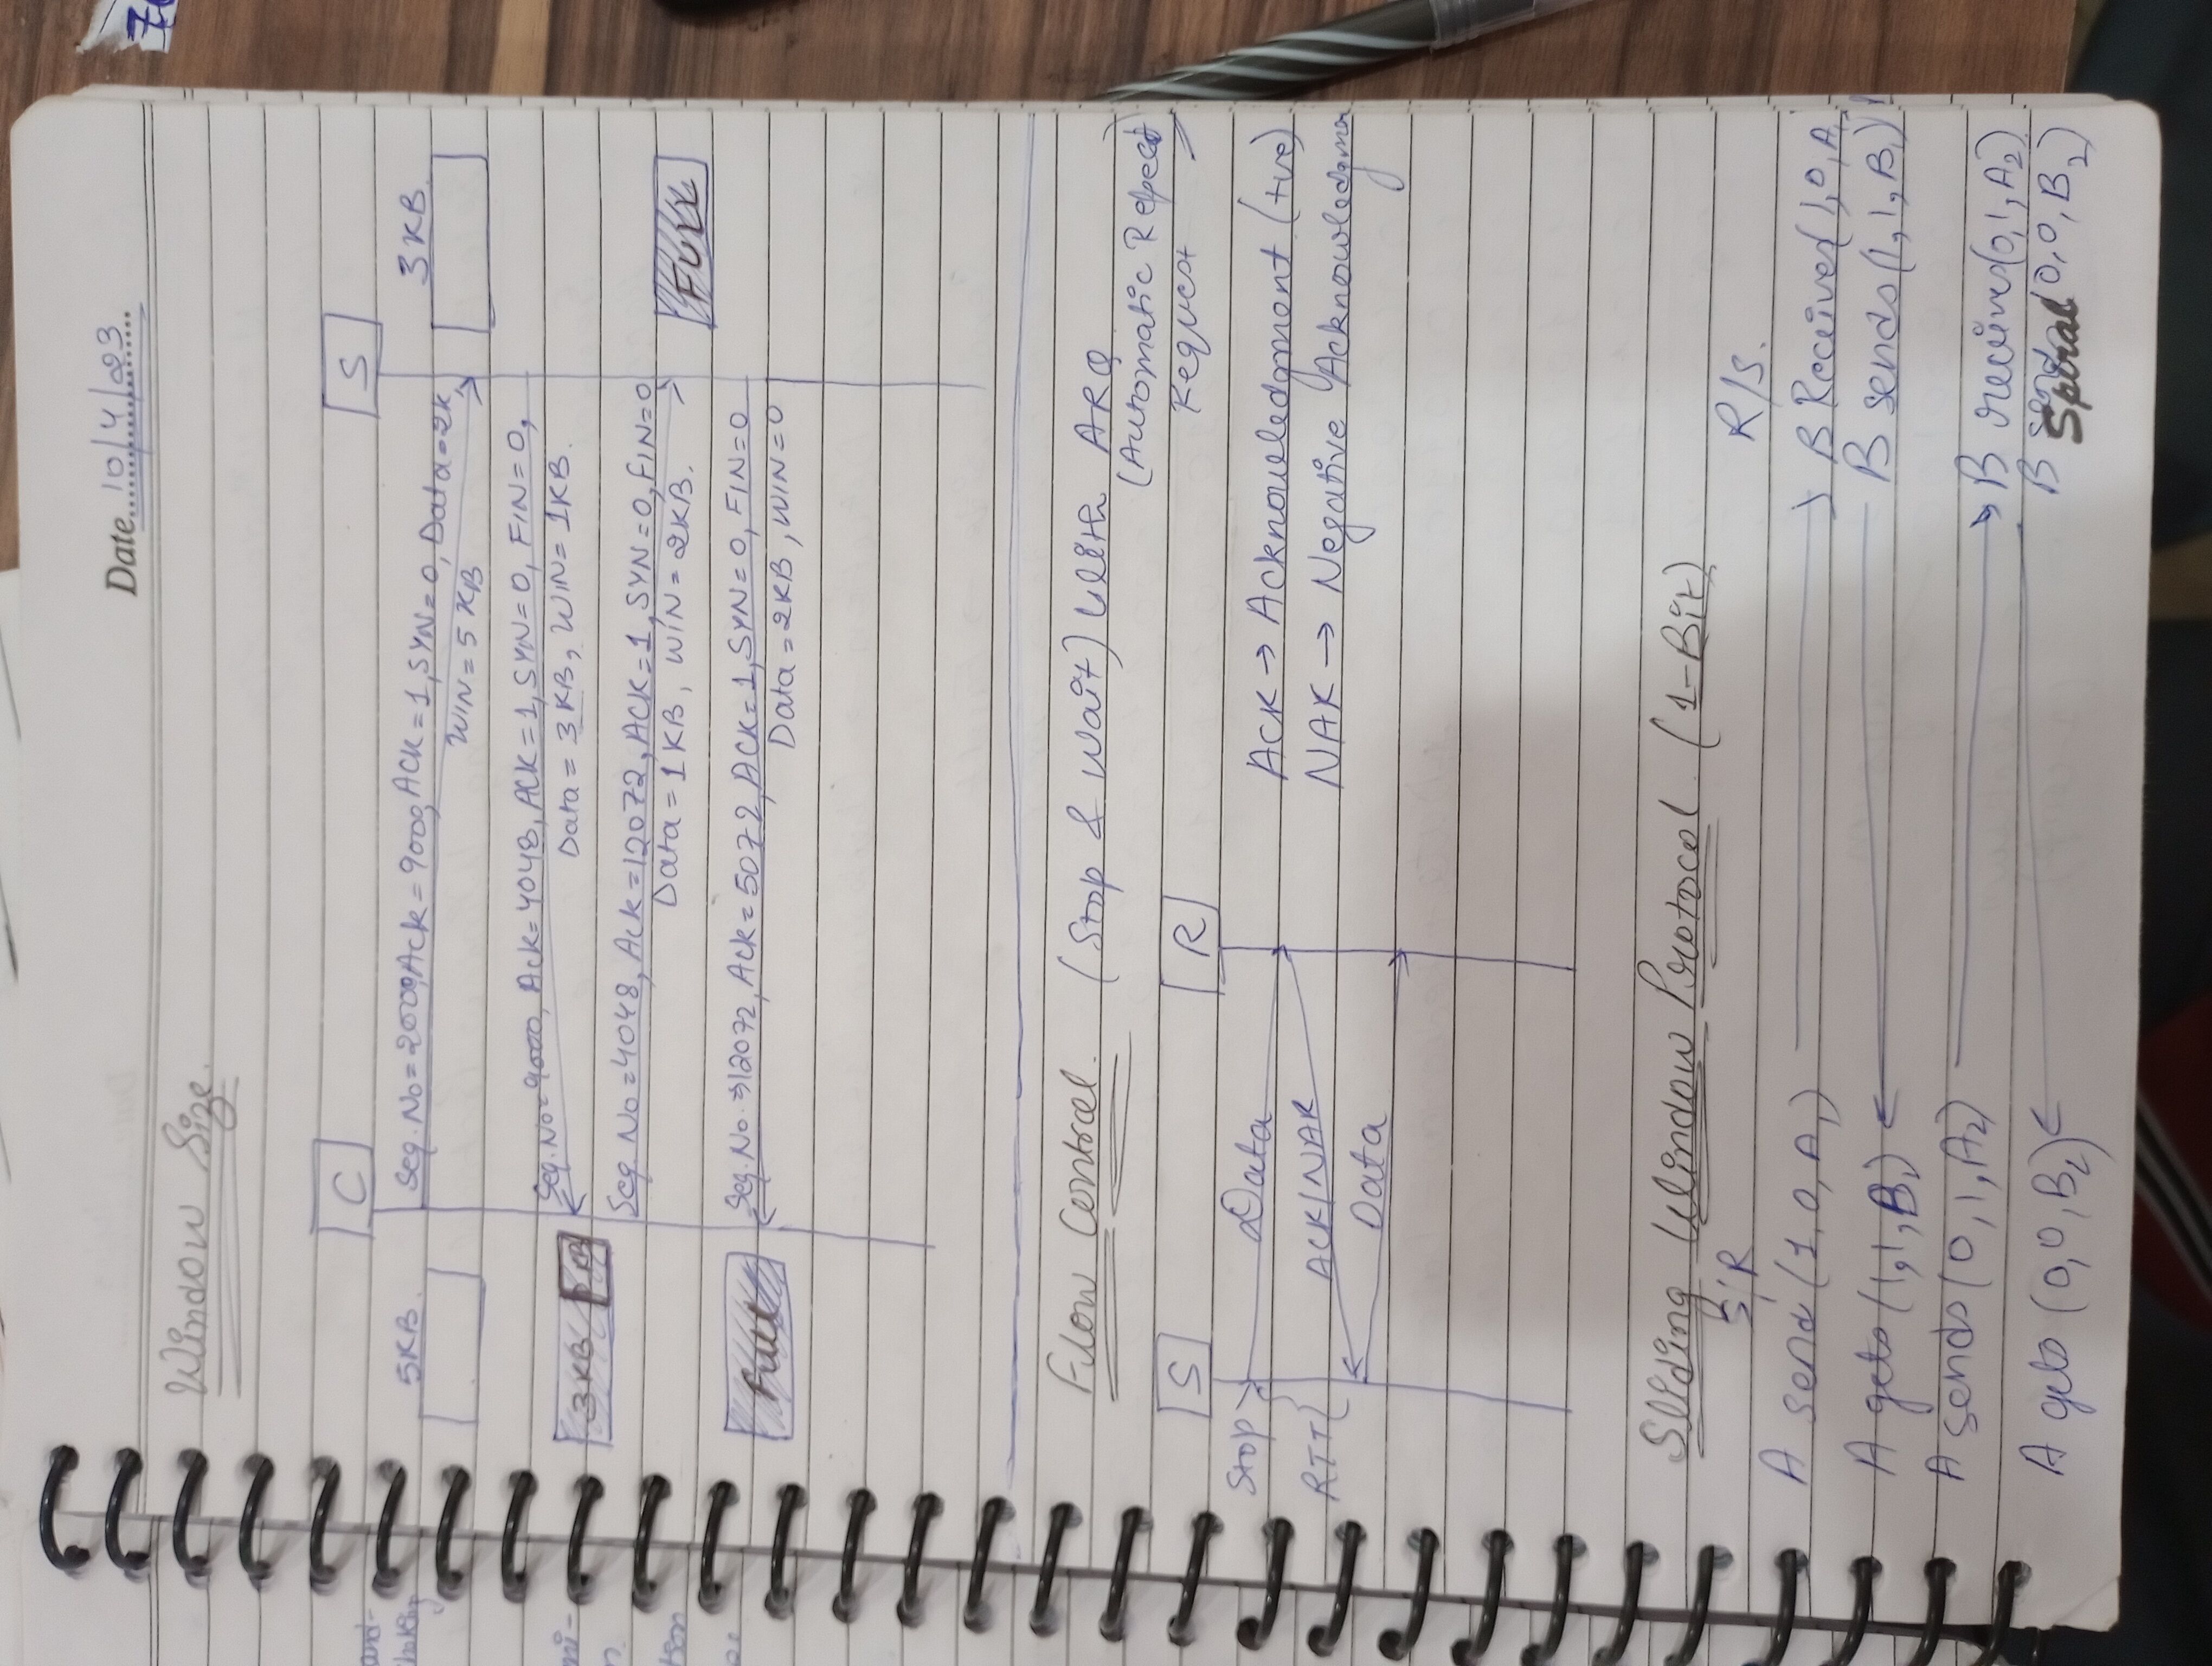 Date 10/4/23
Window Size.
C
S
5KB.
Seq. No = 2000, Ack = 9000, ACK = 1, SYN = 0, Data = 2K,
WIN = 5 KB
3KB
Seq. No = 9000, Ack = 4048, ACK = 1, SYN = 0, FIN = 0,
Data = 3KB, WIN = 1KB.
3KB
KB
Seq. No = 4048, Ack = 12072, ACK = 1, SYN = 0, FIN = 0
Data = 1KB, WIN = 2KB.
Full
Seq. No. = 12072, Ack = 5072, ACK = 1, SYN = 0, FIN = 0
Data = 2KB, WIN = 0
Full
Flow Control. (Stop & Wait) With ARQ
(Automatic Repeat
Request)
S
R
Stop
Data
ACK → Acknowledgment (+ve)
RTT
ACK/NAK
NAK → Negative Acknowledgme
Data
Sliding Window Protocol. (1-Bit)
S/R
R/S.
A send (1, 0, A1)
B Receives (1, 0, A1
A gets (1, 1, B1)
B sends (1, 1, B1)
A sends (0, 1, A2)
B receives (0, 1, A2)
A gets (0, 0, B2)
B sends (0, 0, B2)
Spiral